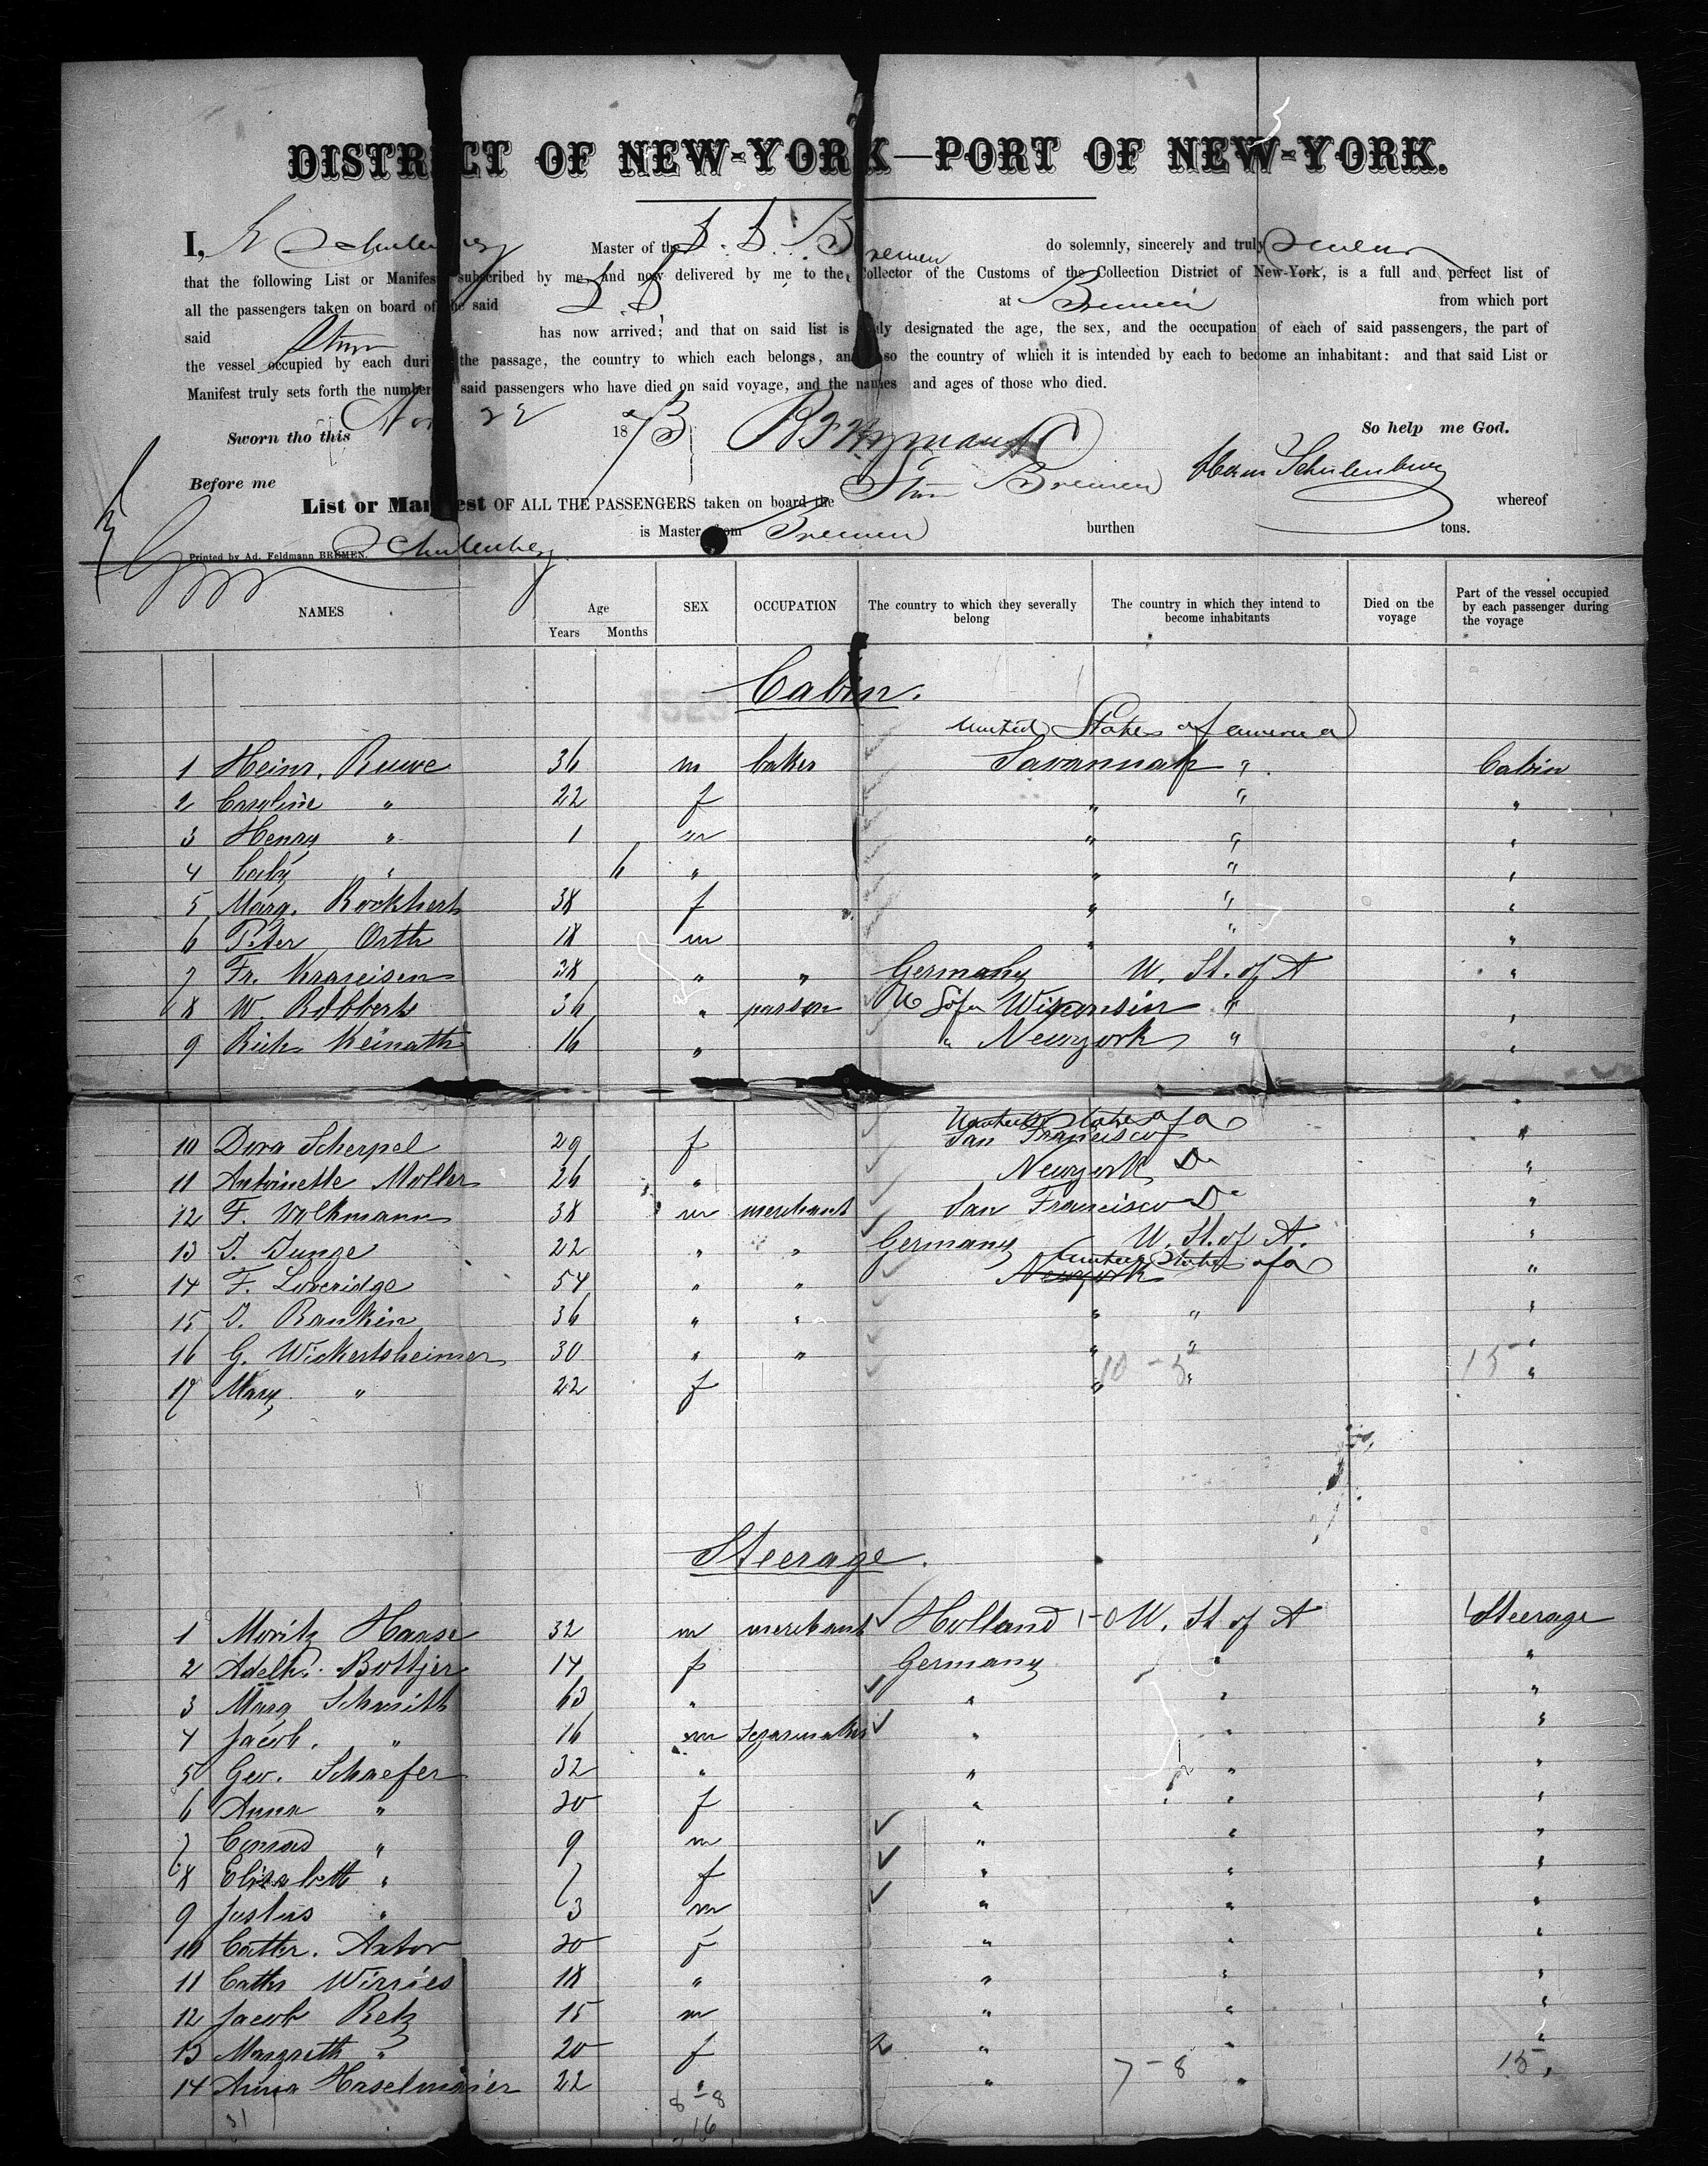 DISTRICT OF NEW-YORK—PORT OF NEW-YORK.
I, E Schulenberg Master of the S. S. Bremen do solemnly, sincerely and truly swear
that the following List or Manifest subscribed by me and now delivered by me to the Collector of the Customs of the Collection District of New-York, is a full and perfect list of
all the passengers taken on board of the said S. S. at Bremen from which port
said Stmr has now arrived; and that on said list is truly designated the age, the sex, and the occupation of each of said passengers, the part of
the vessel occupied by each during the passage, the country to which each belongs, and also the country of which it is intended by each to become an inhabitant: and that said List or
Manifest truly sets forth the number of said passengers who have died on said voyage, and the names and ages of those who died.
Sworn tho this Nov 22 1873 So help me God.
Before me Herm Schulenburg
List or Manifest OF ALL THE PASSENGERS taken on board the Stmr Bremen whereof
Schulenberg is Master from Bremen burthen tons.
Printed by Ad. Feldmann BREMEN.
NAMES Age Years Months SEX OCCUPATION The country to which they severally belong The country in which they intend to become inhabitants Died on the voyage Part of the vessel occupied by each passenger during the voyage
Cabin.
United States of America
1 Heinr. Ruwe 36 m baker Savannah " Cabin
2 Caroline " 22 f " " "
3 Henry " 1 m " " "
4 baby " 6 " " " "
5 Marg. Rockhert 38 f " " "
6 Peter Orth 18 m " " "
7 Fr. 38 " " Germany U. St. of A "
8 W. Robberts 36 " parson U S of a Wisconsin " "
9 Rich. Keinath 16 " " Newyork " "
United States of a
10 Dora Scherpel 29 f San Francisco "
11 Antoinette Moller 26 " Newyork Do "
12 F. Volkmann 38 m merchant San Francisco Do "
13 J. Junge 22 " " Germany U. St. of A. "
14 F. Loveridge 54 " " Newyork United States of a "
15 J. Rankin 36 " " " " "
16 G. Wickertsheimer 30 " " " " "
17 Mary " 22 f " " "
10-5 15
Steerage.
1 Moritz Haase 32 m merchant Holland 1-0 U. St. of A Steerage
2 Adelh. Boltjer 14 f Germany " "
3 Marg Schmith 63 " " " "
4 Jacob. " 16 m segarmaker " " "
5 Geo. Schaefer 32 " " " "
6 Anna " 30 f " " "
7 Conrad " 9 m " " "
8 Elisabeth " 7 f " " "
9 Justus " 3 m " " "
10 Cather. Axtor 20 f " " "
11 Cathr Wirries 18 " " " "
12 Jacob Retz 15 m " " "
13 Margreth " 20 f " " "
14 Anna Haselmaier 22 " " " "
7-8 15
31 8-8
16